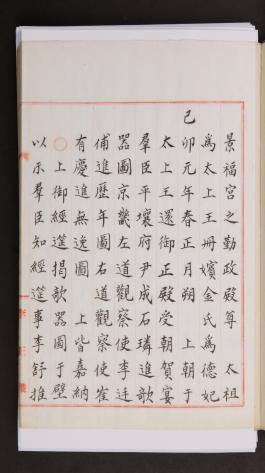 景福宮之勤政殿尊　太祖
爲太上王冊嬪金氏爲德妃
己卯元年春正月朔　上朝于
太上王還御正殿受朝賀宴
羣臣平壤府尹成石璘進歌
器圖京畿左道觀察使李廷
俌進歷年圖右道觀察使崔
有慶進無逸圖　上皆嘉納
○上御經筵揭歌器圖于壁
以示羣臣知經筵事李舒推